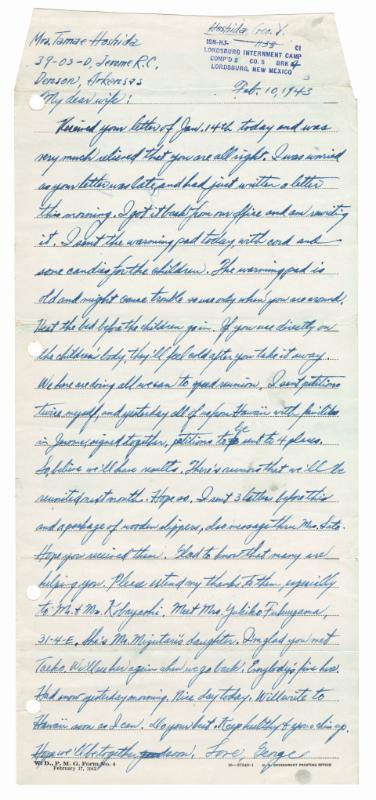 Mrs. Tamae Hoshida
39-03-D, Jerome R.C.
Denson, Arkansas
Hoshida, Geo. Y.
ISN-HJ- 1138 CI
LORDSBURG INTERNMENT CAMP
COMP'D 2 CO. 5 BRK 4
LORDSBURG, NEW MEXICO
Feb. 10, 1943
My dear wife:
Received your letter of Jan. 14th today and was
very much relieved that you are all right. I was worried
as your letter was late, and had just written a letter
this morning. I got it back from our office and am rewriting
it. I sent the warming pad today with cord and
some candies for the children. The warming pad is
old and might cause trouble so use only when you are around.
Heat the bed before the children go in. If you use directly on
the children's body, they'll feel cold after you take it away.
We here are doing all we can to speed reunion. I sent petitions
twice myself, and yesterday all of us from Hawaii with families
in Jerome, signed together, petitions to be sent to 4 places.
So, believe we'll have results. There's rumors that we'll be
reunited next month. Hope so. I sent 3 letters before this
and a package of wooden slippers, also message thru Mrs. Sato.
Hope you received them. Glad to know that many are
helping you. Please extend my thanks to them, especially
to Mr. & Mrs. Kobayashi. Meet Mrs. Yukiko Fukuyama,
31-4-E. She's Mr. Miyutari's daughter. I'm glad you met
We'll see her again when we go back. Everybody's fine here.
Had snow yesterday morning. Nice day today. Will write to
Hawaii soon as I can. Do your best. Keep healthy & your chin up.
Hope we'll be together soon. Love, George
W. D., P. M. G. Form No. 4
February 17, 1942
U. S. GOVERNMENT PRINTING OFFICE